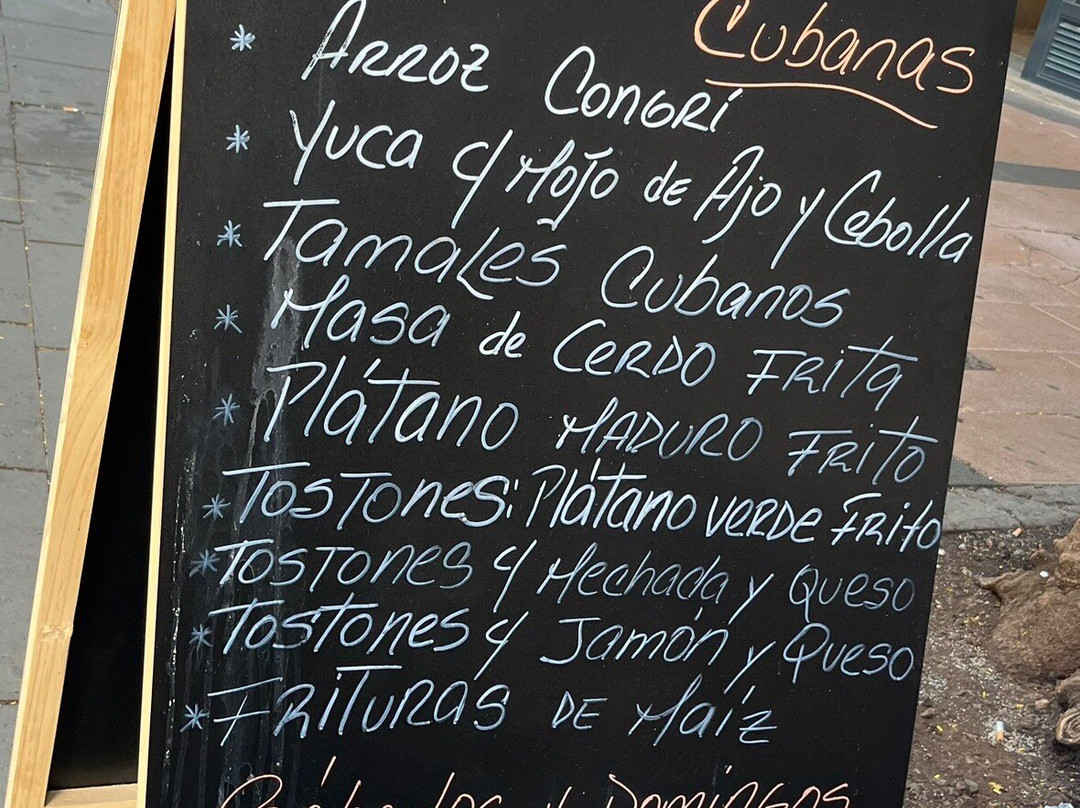 Cubanas
* Arroz Congrí
* Yuca c/ Mojo de Ajo y Cebolla
* Tamales Cubanos
* Masa de Cerdo Frita
* Plátano Maduro Frito
* Tostones: Plátano verde Frito
* Tostones c/ Mechada y Queso
* Tostones c/ Jamón y Queso
* Frituras de Maíz
y Domingos